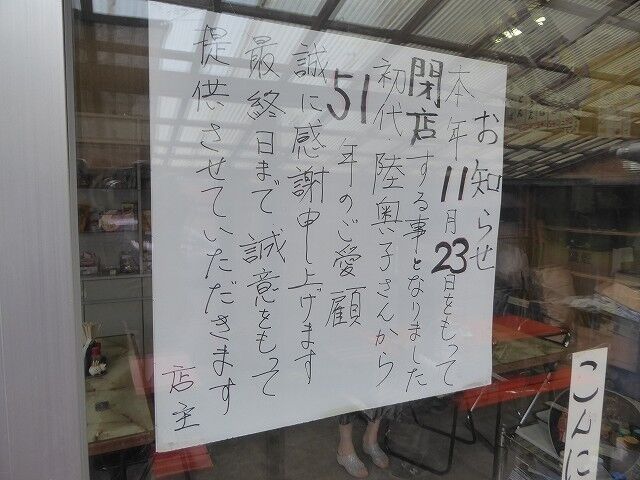 お知らせ
本年11月23日をもって
閉店する事となりました
初代・陸奥子さんから
51年のご愛顧
誠に感謝申し上げます
最終日まで誠意をもって
提供させていただきます
店主
こんに